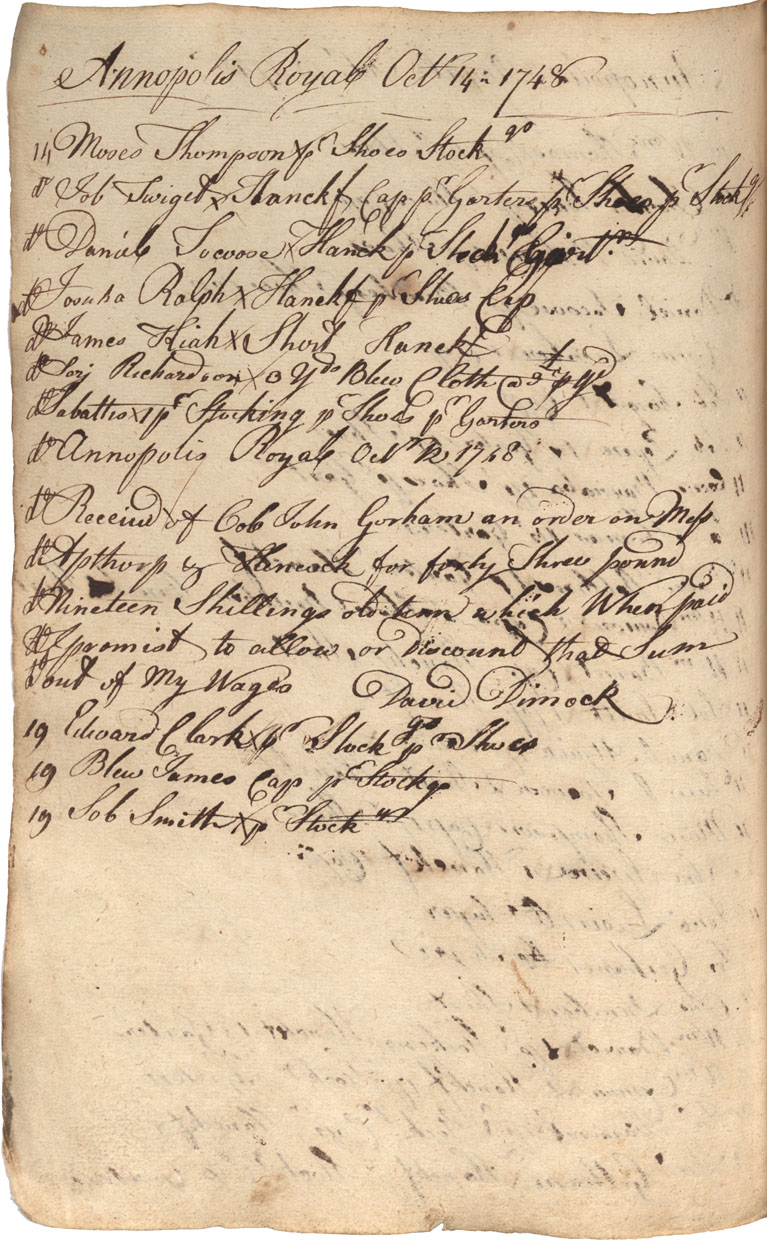 Annopolis Royal Octr 14: 1748
14 Moses Thompson x pr Shoes Stockgs
do Job Twiget x Hanckf Cap pr Garters pr Shoes x pr Stockgs
do Daniel x Hanckf pr
do Joouha Ralph x Hanckf pr Shoes Cap
do James Kiah x Shirt Hanckf
do Richardson x 3 Yds Blew Cloth @ p yd
do Sabattis x 1 pr Stocking pr Shoes pr Garters
do Annopolis Royal Octr 1748
do Receivd of Cob John Gorham an order on Mess
do Apthorp & Hancock for forty Three pound
do Nineteen Shillings old tenn which When paid
do I promist to allow or discount that Sum
do out of My Wages David Dimock
19 Edward Clark x pr Stockgs pr Shoes
19 Blew James Cap pr Stockgs
19 Job Smith x pr Stockgs